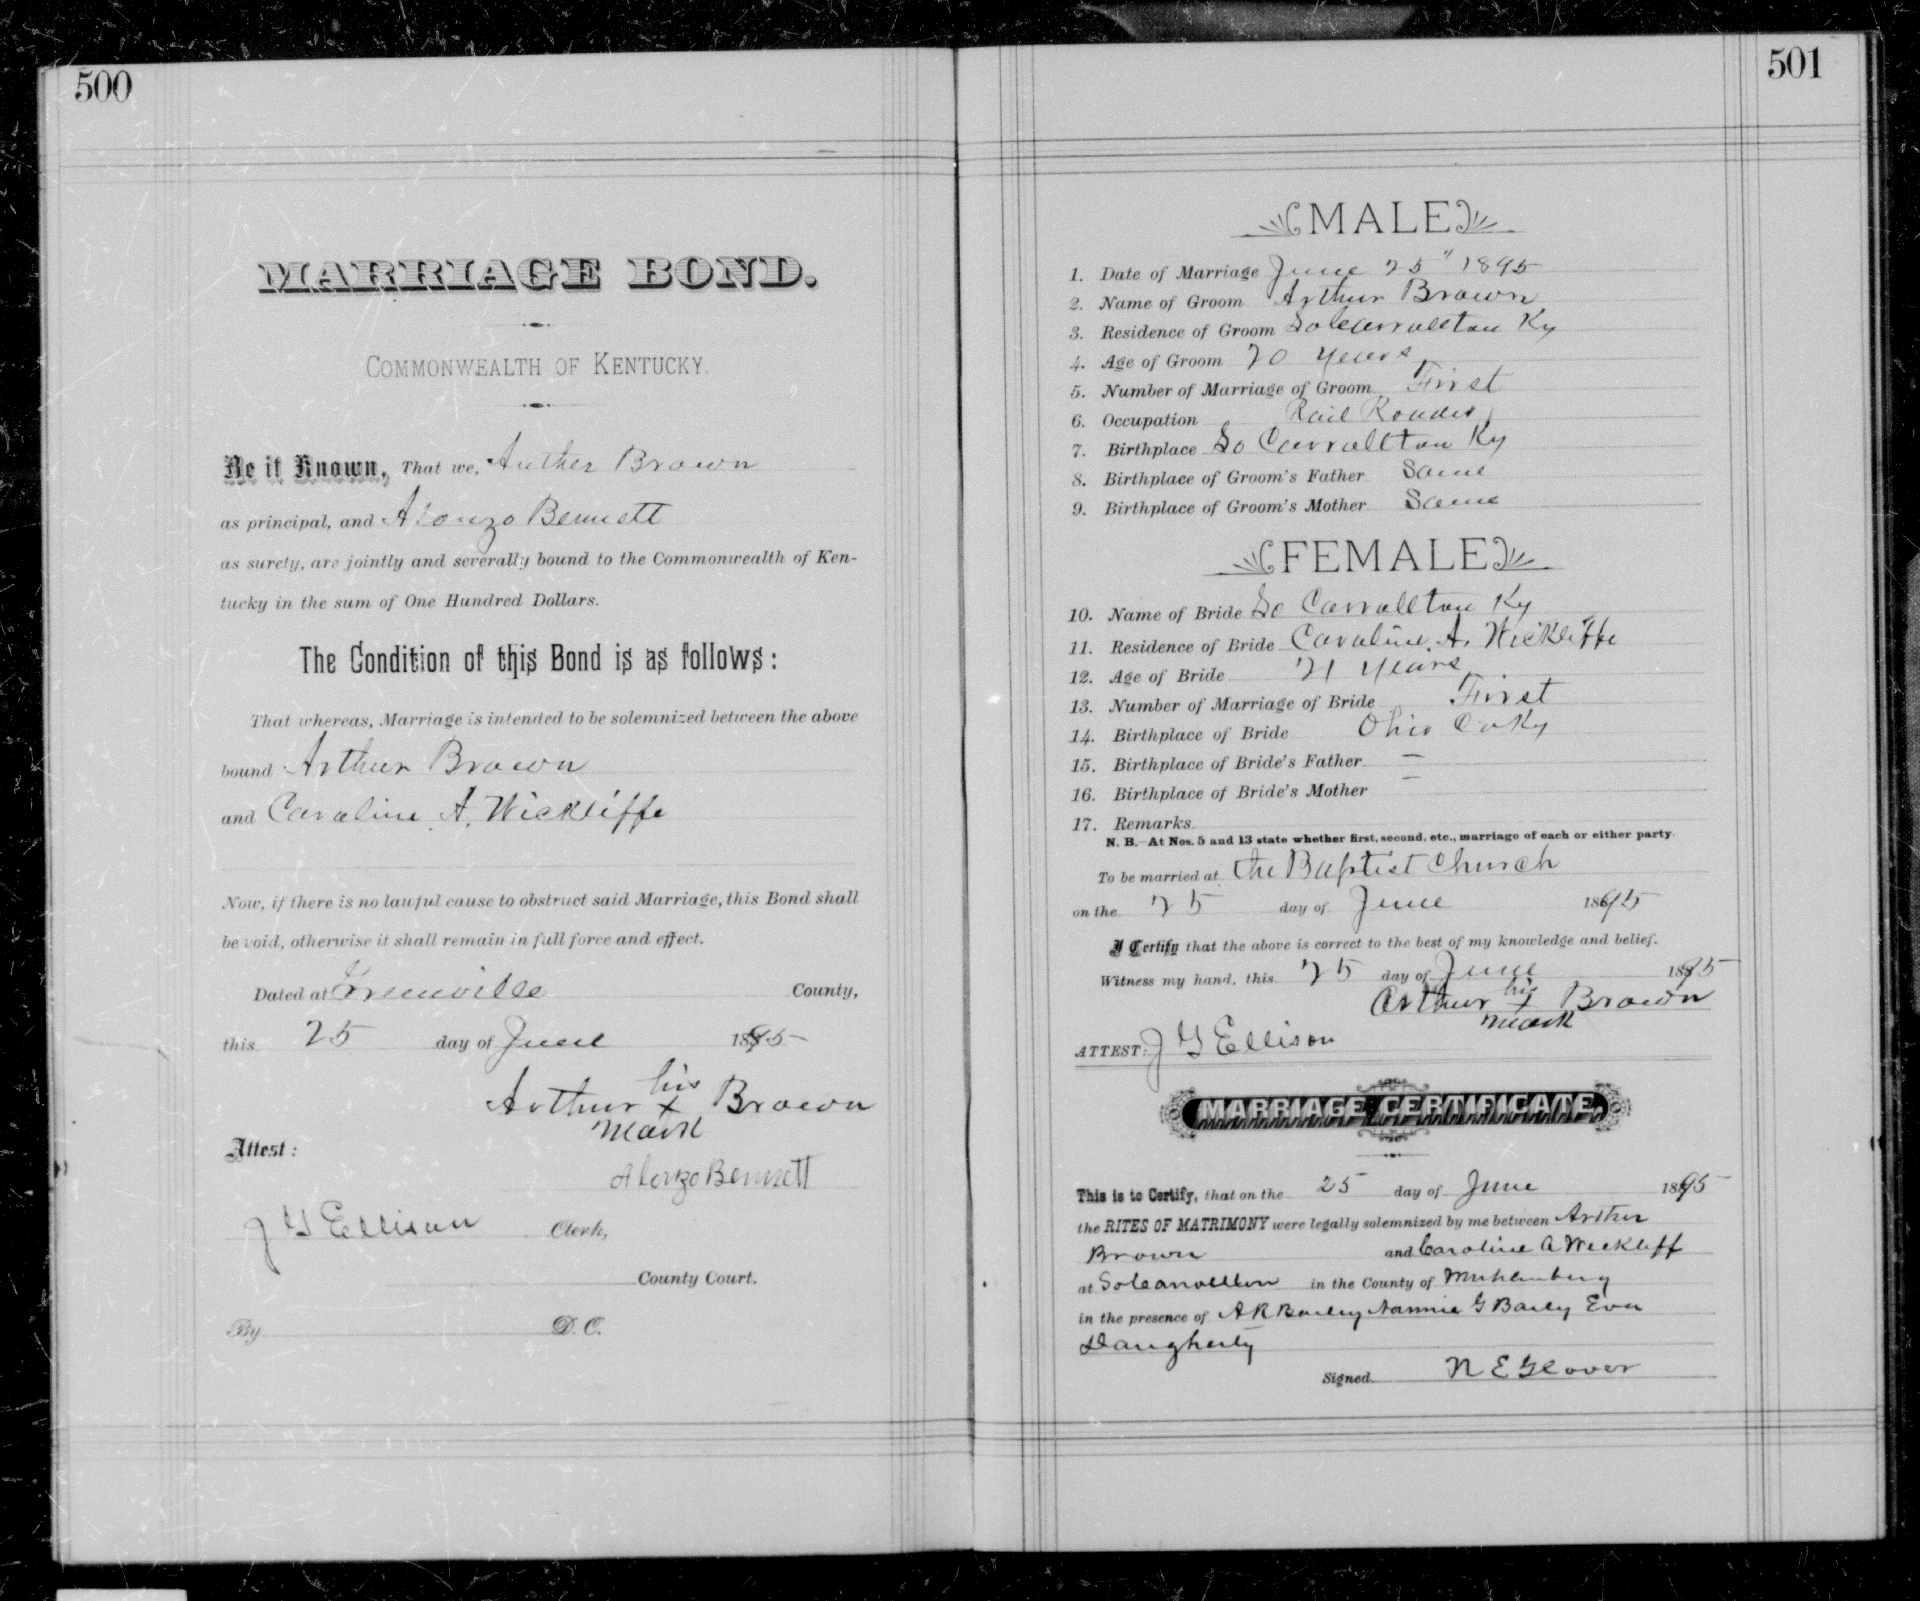 500
MARRIAGE BOND.
COMMONWEALTH OF KENTUCKY.
Be it Known, That we, Auther Brown
as principal, and Alonzo Bennett
as surety, are jointly and severally bound to the Commonwealth of Ken-
tucky in the sum of One Hundred Dollars.
The Condition of this Bond is as follows:
That whereas, Marriage is intended to be solemnized between the above
bound Arthur Brown
and Caroline A. Wickliffe
Now, if there is no lawful cause to obstruct said Marriage, this Bond shall
be void, otherwise it shall remain in full force and effect.
Dated at Greenville County,
this 25 day of June 1895
Arthur his x mark Brown
Attest:
Alonzo Bennett
J G Ellison Clerk,
County Court.
By D. C.
501
MALE
1. Date of Marriage June 25" 1895
2. Name of Groom Arthur Brown
3. Residence of Groom So Carrollton Ky
4. Age of Groom 20 years
5. Number of Marriage of Groom First
6. Occupation Rail Roader
7. Birthplace So Carrollton Ky
8. Birthplace of Groom's Father Same
9. Birthplace of Groom's Mother Same
FEMALE
10. Name of Bride So Carrollton Ky
11. Residence of Bride Caroline. A. Wickliffe
12. Age of Bride 21 years
13. Number of Marriage of Bride First
14. Birthplace of Bride Ohio Co Ky
15. Birthplace of Bride's Father —
16. Birthplace of Bride's Mother —
17. Remarks
N. B.—At Nos. 5 and 13 state whether first, second, etc., marriage of each or either party.
To be married at the Baptist Church
on the 25 day of June 1895
I Certify that the above is correct to the best of my knowledge and belief.
Witness my hand, this 25 day of June 1895
Arthur his x mark Brown
ATTEST: J G Ellison
MARRIAGE CERTIFICATE.
This is to Certify, that on the 25 day of June 1895
the RITES OF MATRIMONY were legally solemnized by me between Arther
Brown and Caroline A Weckliff
at So Carrollton in the County of Muhlenberg
in the presence of A R Barley Nannie G Barly Even
Daugherty
Signed N E Glover